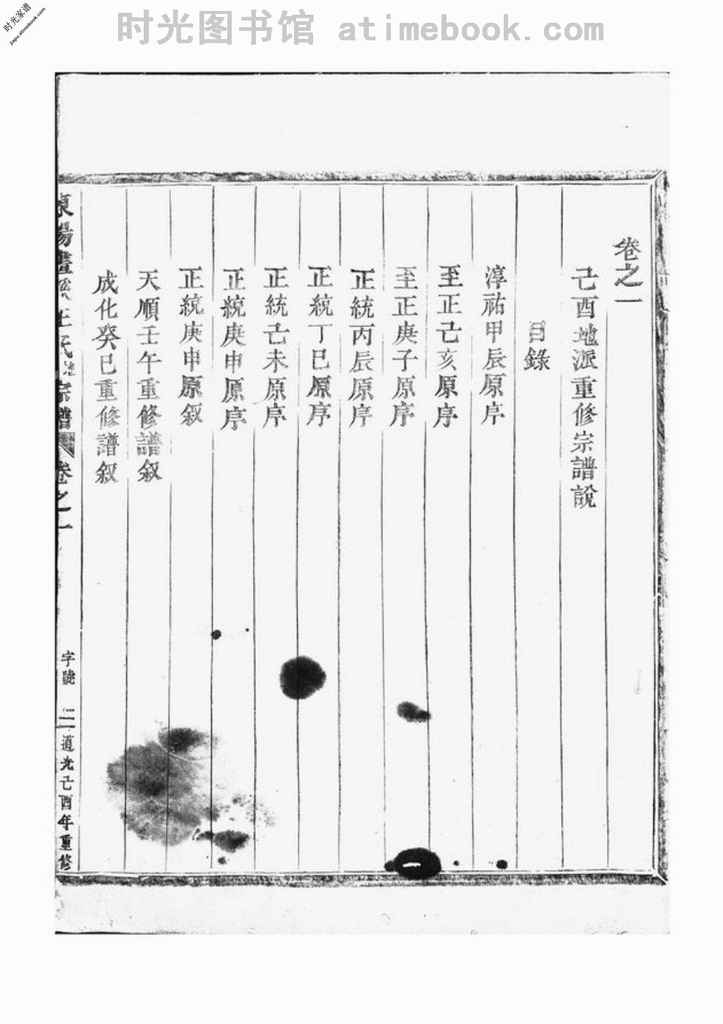 时光图书馆 atimebook.com
时光家谱
jiapu.atimebook.com
卷之一
己酉地派重修宗譜說
目錄
淳祐甲辰原序
至正己亥原序
至正庚子原序
正統丙辰原序
正統丁巳原序
正統己未原序
正統庚申原序
正統庚申原叙
天順壬午重修譜叙
成化癸巳重修譜叙
東陽 王氏 宗譜 卷之一
字號 二 道光己酉年重修